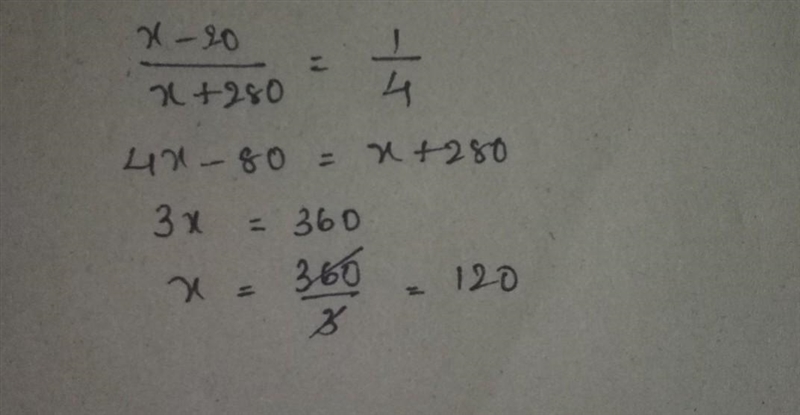 x - 20 / x + 280 = 1 / 4
4x - 80 = x + 280
3x = 360
x = 360 / 3 = 120